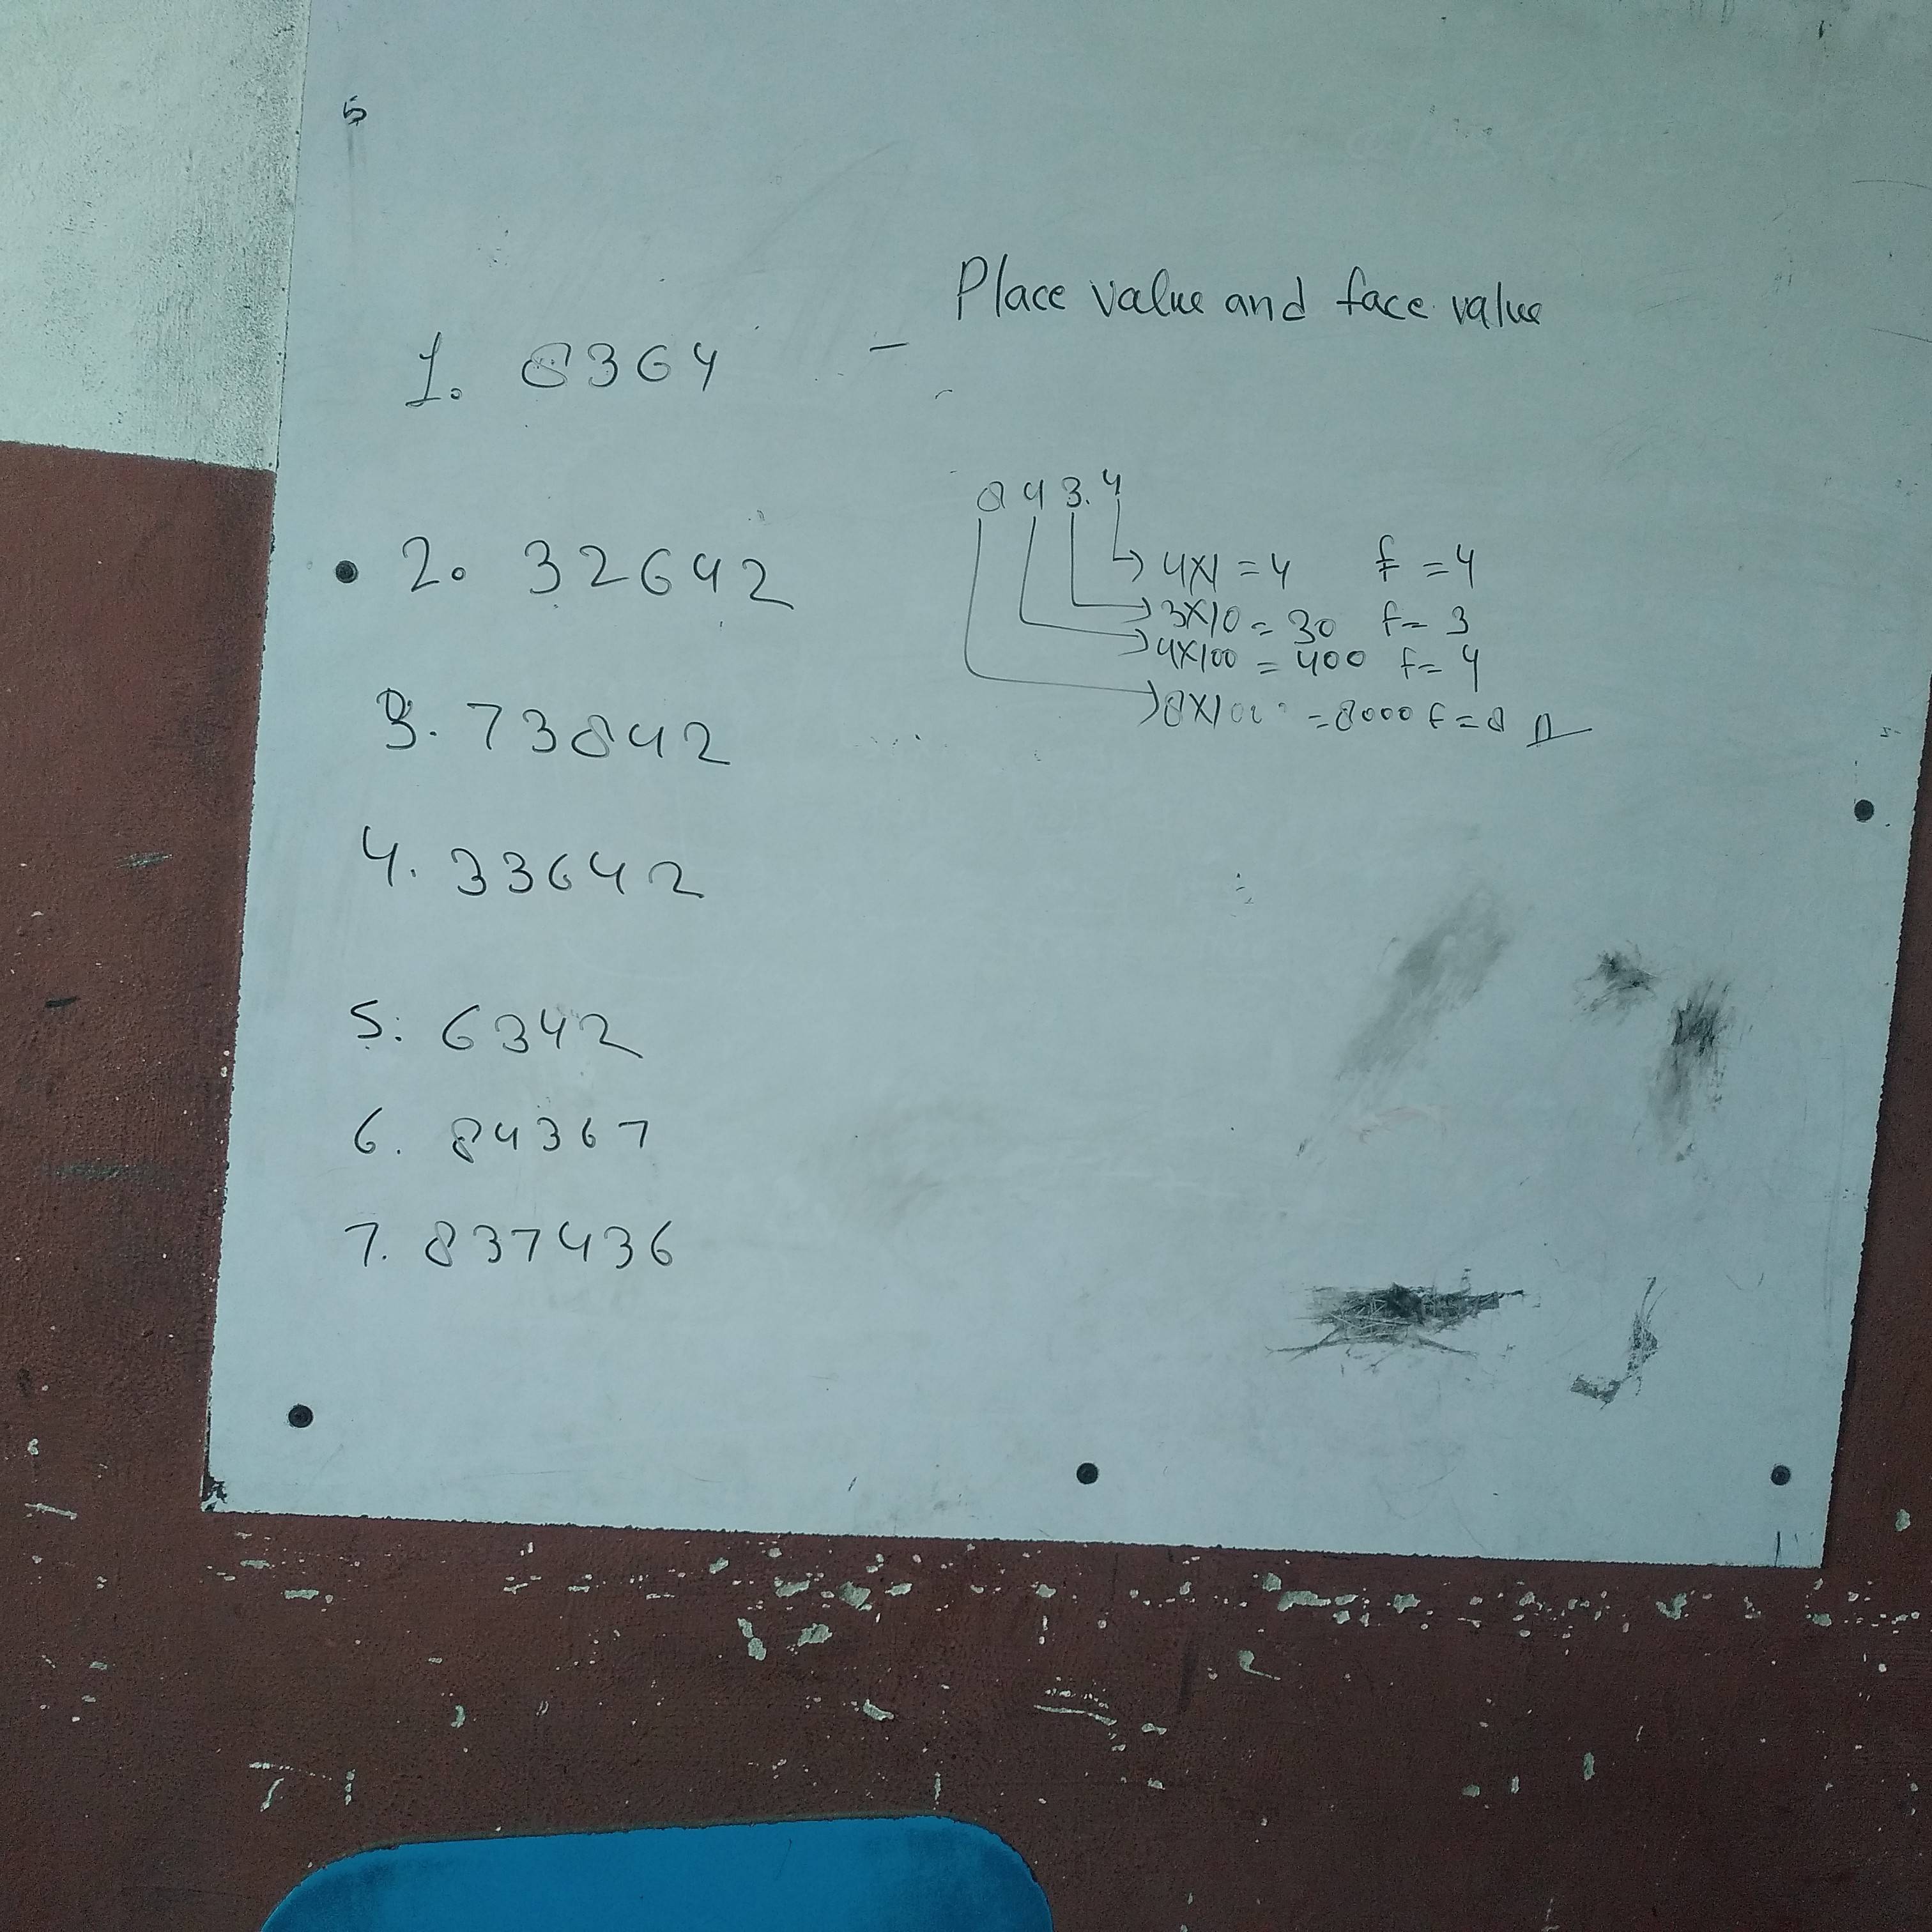 5
Place value and face value
1. 8364 -
8 4 3. 4
4X1 = 4 f = 4
3X10 = 30 f = 3
4X100 = 400 f = 4
= 8000 f = 8
2. 32642
3. 73842
4. 33642
5. 6342
6. 84367
7. 837436